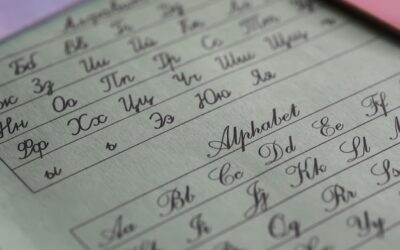 Алфавит
Бб Вв Гг Дд
Жж Зз Ии Йй Кк Лл Мм
Нн Оо Пп Рр Сс Тт Уу
Фф Хх Цц Чч Шш Щщ ъ
ы ь Ээ Юю Яя
Alphabet
Aa Bb Cc Dd Ee Ff
Ii Jj Kk Ll
Qq Rr Ss
Yy